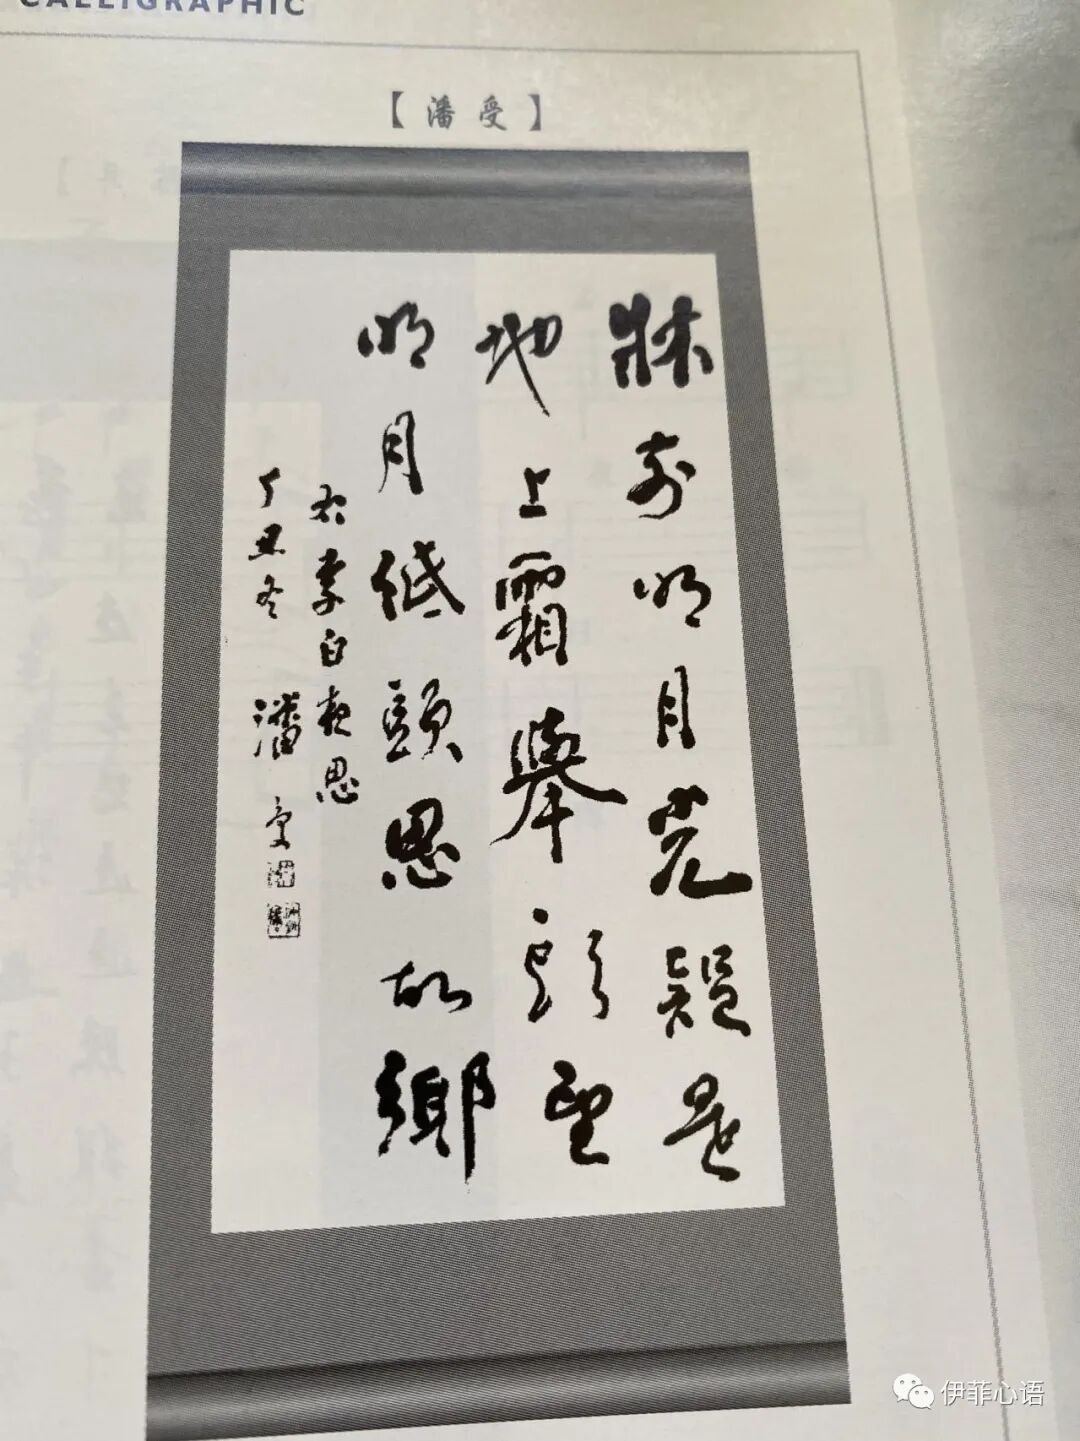 CALLIGRAPHIC
【潘受】
牀前明月光疑是
地上霜舉頭望
明月低頭思故鄉
右李白夜思
丁丑冬 潘受
伊菲心语